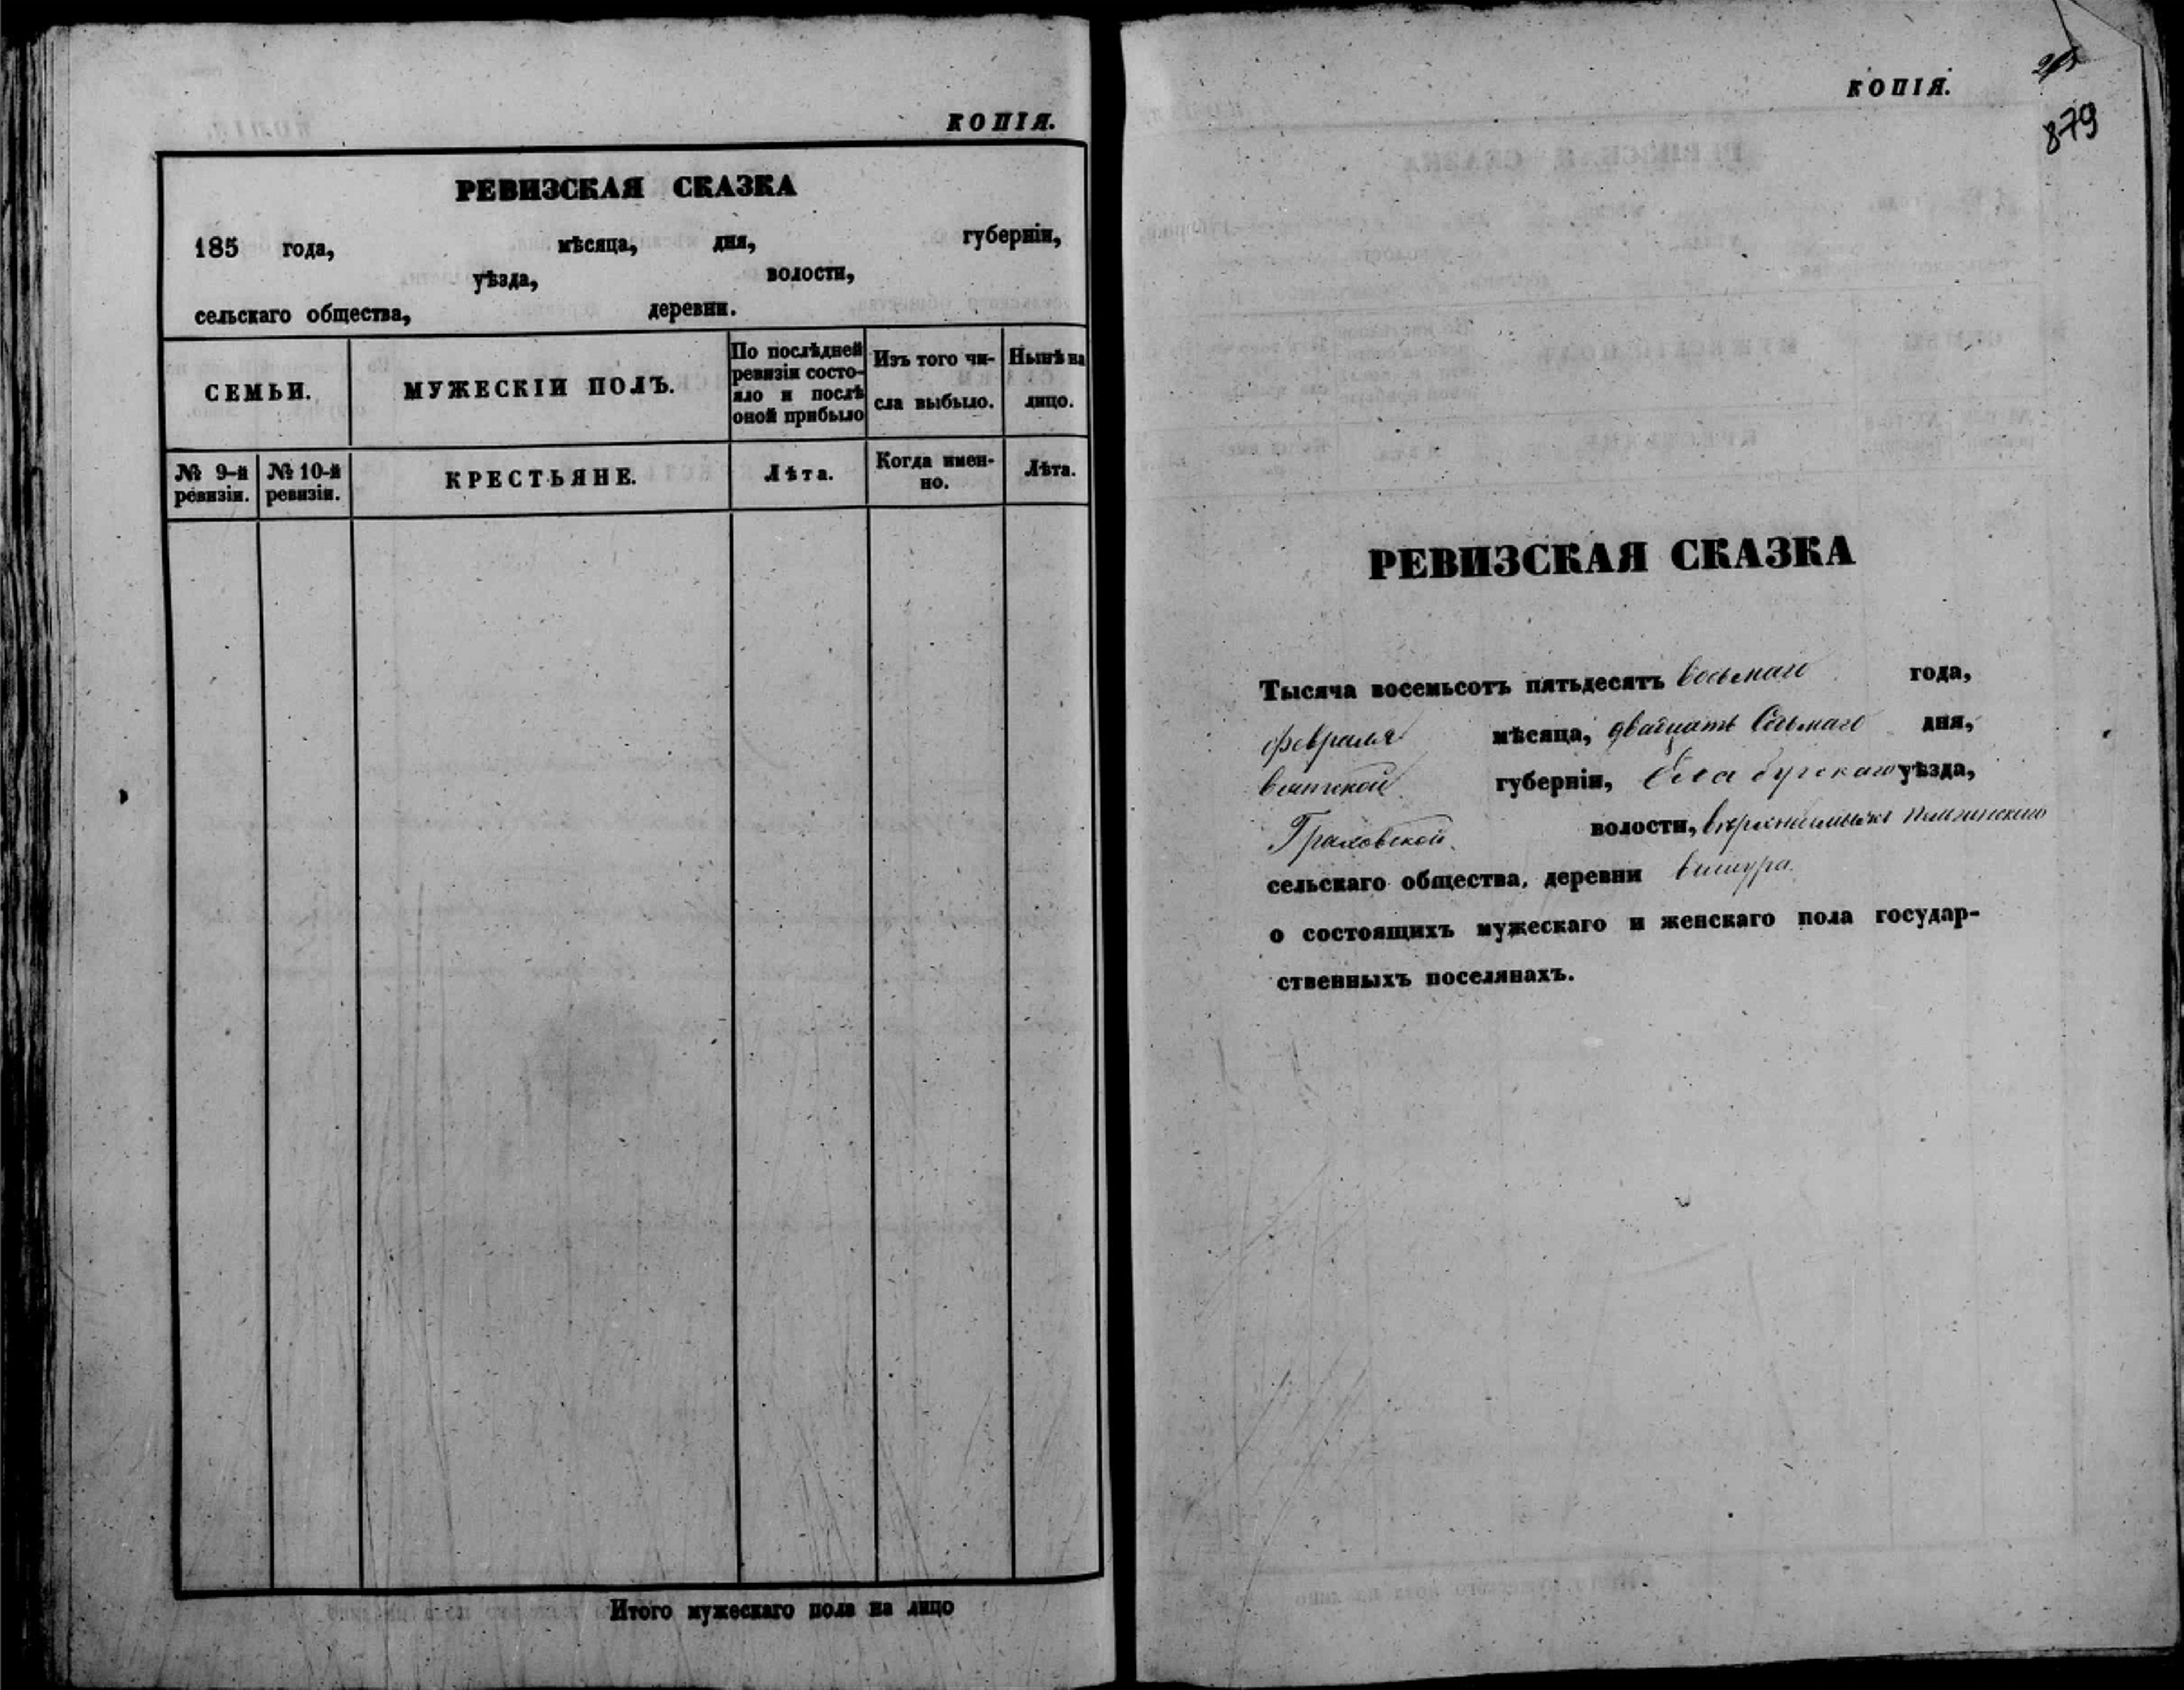 КОПІЯ.
РЕВИЗСКАЯ СКАЗКА
185 года, мѣсяца, дня, губерніи,
уѣзда, волости,
сельскаго общества, деревни.
СЕМЬИ.
МУЖЕСКІИ ПОЛЪ.
По послѣдней
ревизіи состо-
яло и послѣ
оной прибыло
Изъ того чи-
сла выбыло.
Нынѣ на
лицо.
№ 9-й
ревизіи.
№ 10-й
ревизіи.
КРЕСТЬЯНЕ.
Лѣта.
Когда имен-
но.
Лѣта.
Итого мужескаго пола на лицо
КОПІЯ.
879
РЕВИЗСКАЯ СКАЗКА
Тысяча восемьсотъ пятьдесятъ восьмаго года,
февраля мѣсяца, двадцать седьмаго дня,
вятской губерніи, Елабугскаго уѣзда,
Граховской волости,
сельскаго общества, деревни
о состоящихъ мужескаго и женскаго пола государ-
ственныхъ поселянахъ.